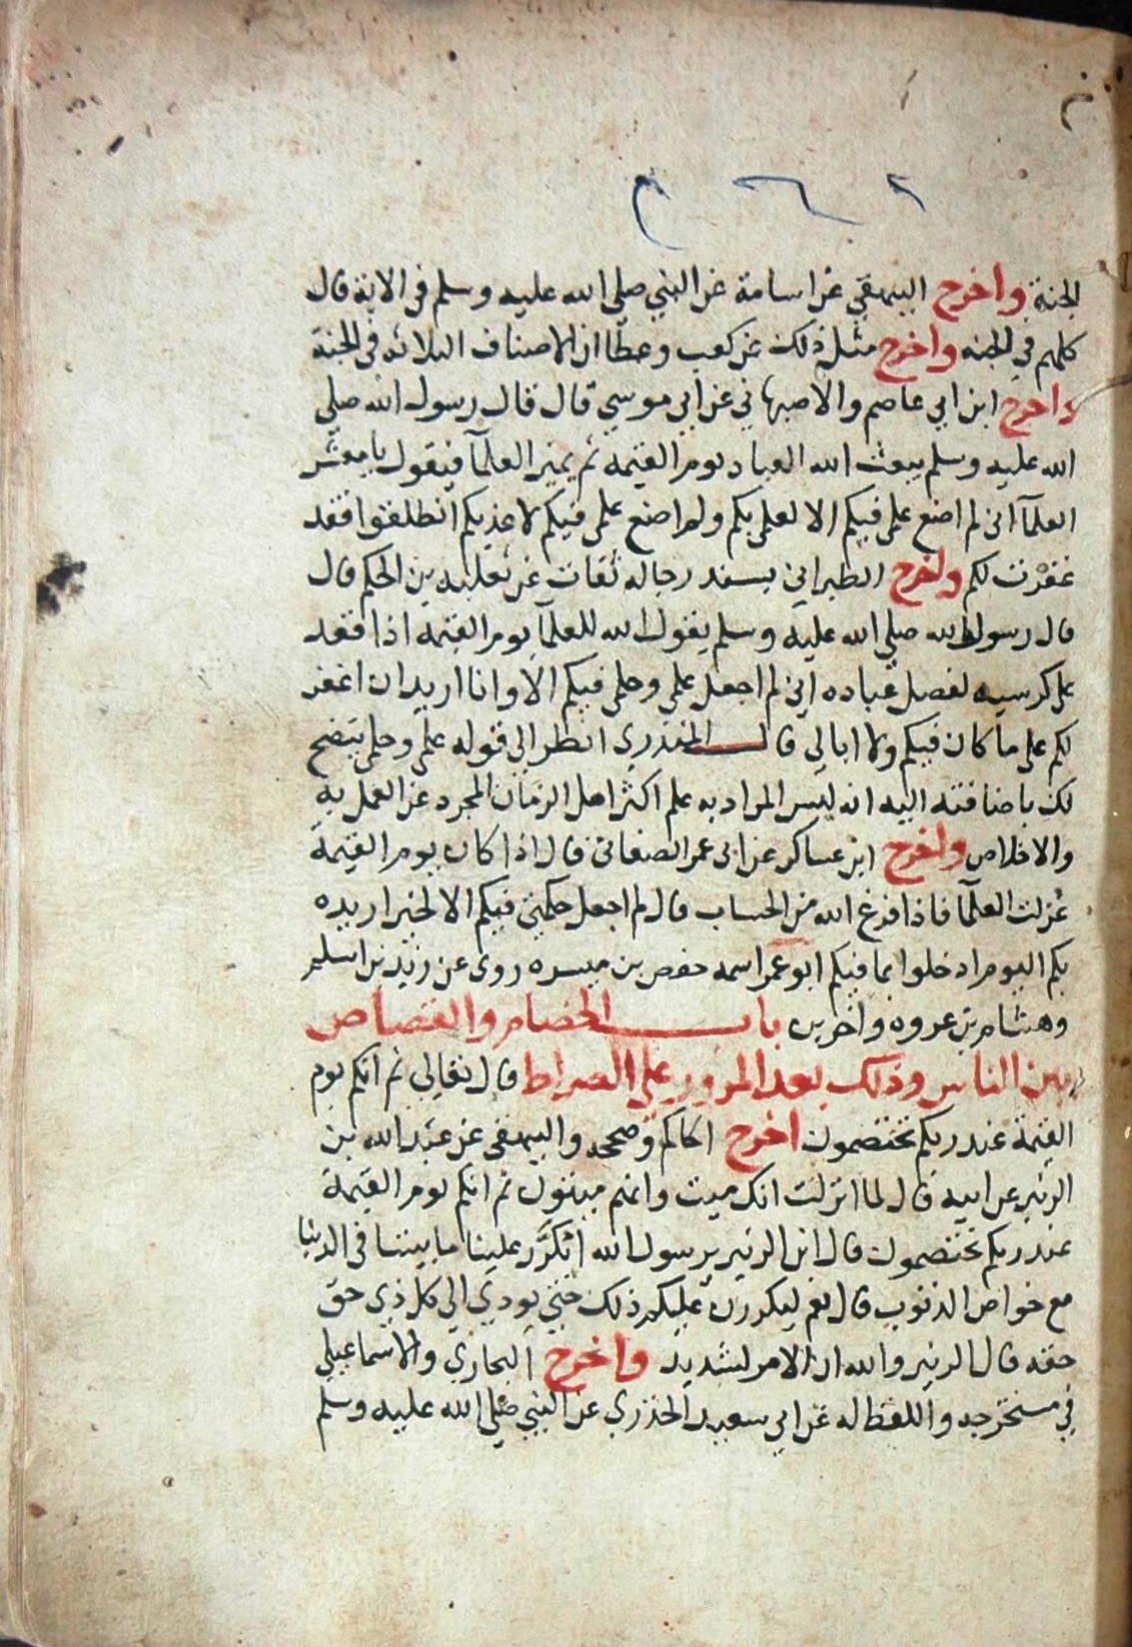 الجنة واخرج البيهقي عن اسامة عن النبي صلي الله عليه وسلم في الاية قال
كلهم في الجنه واخرج مثل ذلك عن كعب وعطا ان الاصناف الثلاثه في الجنة
واخرج ابن ابي عاصم والاصبهاني عن ابي موسي قال قال رسول الله صلي
الله عليه وسلم يبعث الله العباد يوم القيمه ثم يميز العلمآ فيقول يا معشر
العلمآ اني لم اضع علمي فيكم الا لعلمي بكم ولم اضع علمي فيكم لاعذبكم انطلقوا فقد
غفرت لكم واخرج الطبراني بسند رجاله ثقات عن ثعلبه بن الحكم قال
قال رسول الله صلي الله عليه وسلم يقول الله للعلمآ يوم القيمه اذا قعد
على كرسيه لفصل عباده اني لم اجعل علمي وحلمي فيكم الا وانا اريد ان اغفر
لكم على ما كان فيكم ولا ابالي قال المنذري انظر الي قوله علمي وحلمي يتضح
لك باضافته اليه انه ليس المراد به علم اكثر اهل الزمان المجرد عن العمل به
والاخلاص واخرج ابن عساكر عن ابى عمر الصنعانى قال اذا كان يوم القيمة
عزلت العلمآ فاذا فرغ الله من الحساب قال لم اجعل حكمتي فيكم الا لخير اريده
بكم اليوم ادخلوا بما فيكم ابو عمر اسمه حفص بن ميسره روى عن زيد بن اسلم
وهشام بن عروه واخرين باب الخصام والقصاص
بين الناس وذلك بعد المرور علي الصراط قال تعالي ثم انكم يوم
القيمة عند ربكم تختصمون اخرج الحاكم وصححه والبيهقى عن عبد الله بن
الزبير عن ابيه قال لما انزلت انك ميت وانهم ميتون ثم انكم يوم القيمة
عند ربكم تختصمون قال ابن الزبير يرسول الله اتكرَّر علينا ما بيننا فى الدنيا
مع خواص الذنوب قال نعم ليكررن عليكم ذلك حتي يودي الي كل ذي حق
حقه قال الزبير والله ان الامر لشديد واخرج البخاري والاسماعيلي
في مستخرجه واللفظ له عن ابي سعيد الخدري عن النبي صلي الله عليه وسلم